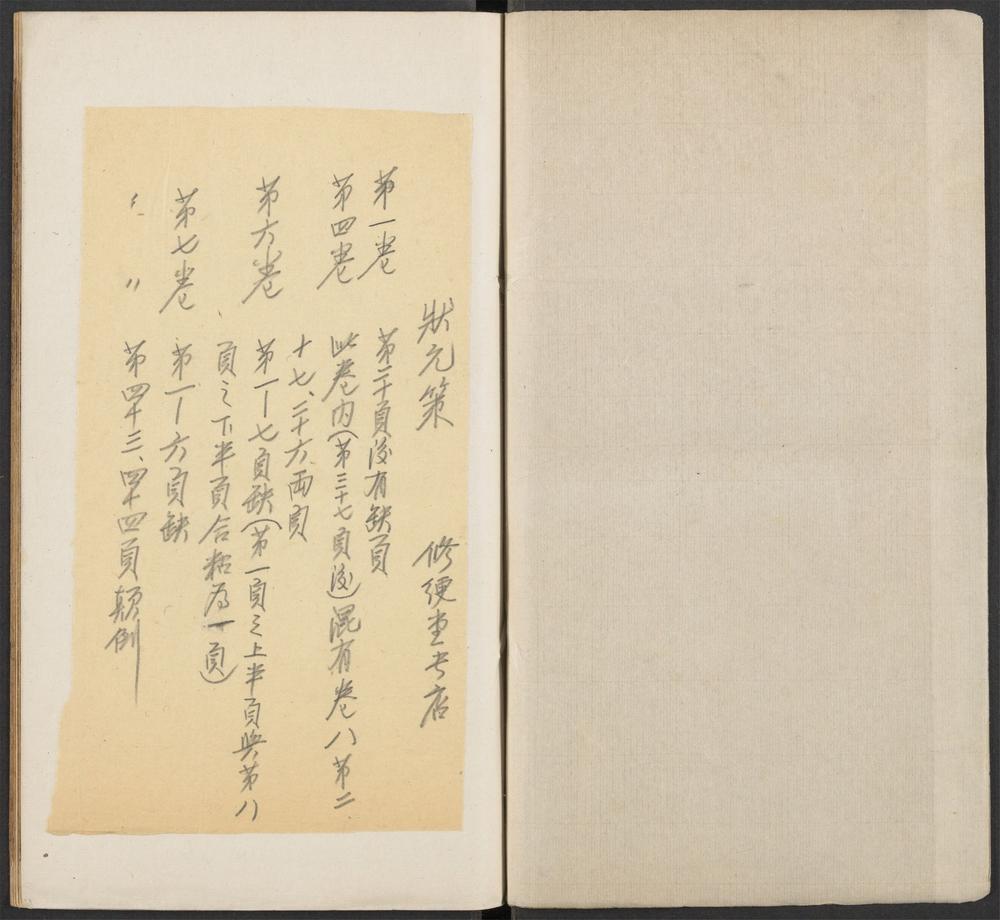 狀元策 修綆堂书店
第一卷 第二十頁後有缺頁
第四卷 此卷内(第三十七頁後)混有卷八第二
十七、二十六两頁
第六卷 第一—七頁缺(第一頁之上半頁與第八
頁之下半頁合粘为一頁)
第七卷 第一—六頁缺
〃 〃 第四十三、四十四頁顛倒